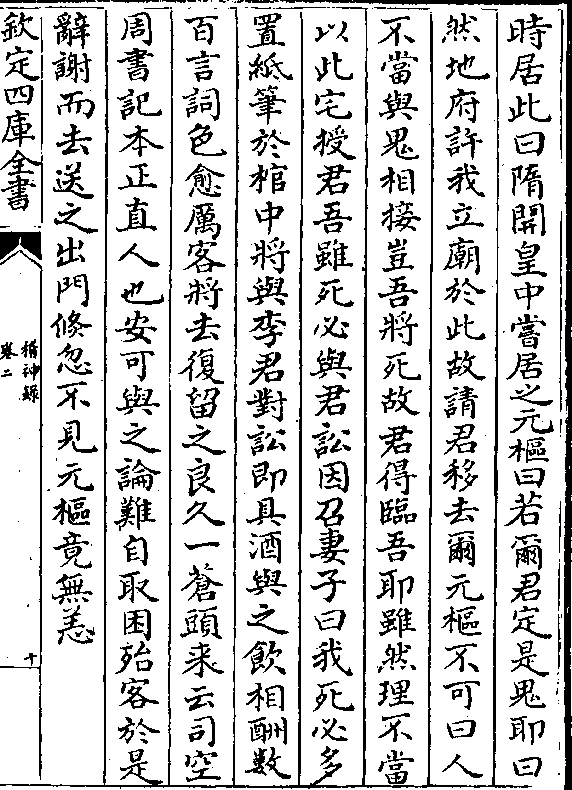 時居此曰隋開皇中嘗居之元樞曰若爾君定是鬼耶曰
然地府許我立廟於此故請君移去爾元樞不可曰人
不當與鬼相接豈吾將死故君得臨吾耶雖然理不當
以此宅授君吾雖死必與君訟因召妻子曰我死必多
置紙筆於棺中將與李君對訟即具酒與之飲相酬數
百言詞色愈厲客將去復留之良久一蒼頭來云司空
周書記本正直人也安可與之論難自取困殆客於是
辭謝而去送之出門倏忽不見元樞竟無恙
欽定四庫全書
稽神錄
卷二
十